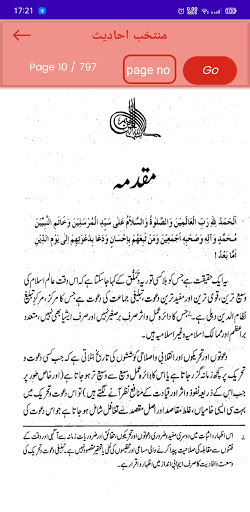 17:21
منتخب احادیث
Page 10 / 797
page no
Go
مقدمہ
اَلْحَمْدُ لِلّٰہِ رَبِّ الْعَالَمِیْنَ وَالصَّلٰوۃُ وَالسَّلَامُ عَلٰی سَیِّدِ الْمُرْسَلِیْنَ وَخَاتَمِ النَّبِیِّیْنَ
مُحَمَّدٍ وَّآلِہٖ وَصَحْبِہٖ اَجْمَعِیْنَ وَمَنْ تَبِعَھُمْ بِاِحْسَانٍ وَدَعَا بِدَعْوَتِھِمْ اِلٰی یَوْمِ الدِّیْنِ
اَمَّا بَعْدُ!
یہ ایک حقیقت ہے جس کو بلا کسی توریہ و تملق کے کہا جا سکتا ہے کہ اس وقت عالم اسلام کی
وسیع ترین، قوی ترین اور مفید ترین دعوت، تبلیغی جماعت کی دعوت ہے جس کا مرکز، مرکز تبلیغ
نظام الدین دہلی ہے۔ جس کا دائرۂ عمل و اثر صرف برصغیر نہیں اور صرف ایشیا بھی نہیں، متعدد
براعظم اور ممالک اسلامیہ و غیر اسلامیہ ہیں۔
دعوتوں اور تحریکوں اور انقلابی و اصلاحی کوششوں کی تاریخ بتلاتی ہے کہ جب کسی دعوت و
تحریک پر کچھ زمانہ گزر جاتا ہے یا اس کا دائرۂ عمل وسیع سے وسیع تر ہو جاتا ہے (اور خاص طور پر
جب اس کے ذریعہ نفوذ و اثر اور قیادت کے منافع نظر آنے لگتے ہیں) تو اس دعوت و تحریک میں
بہت سی ایسی خامیاں، غلط مقاصد اور اصل مقصد سے تغافل شامل ہو جاتا ہے جو اس دعوت کی